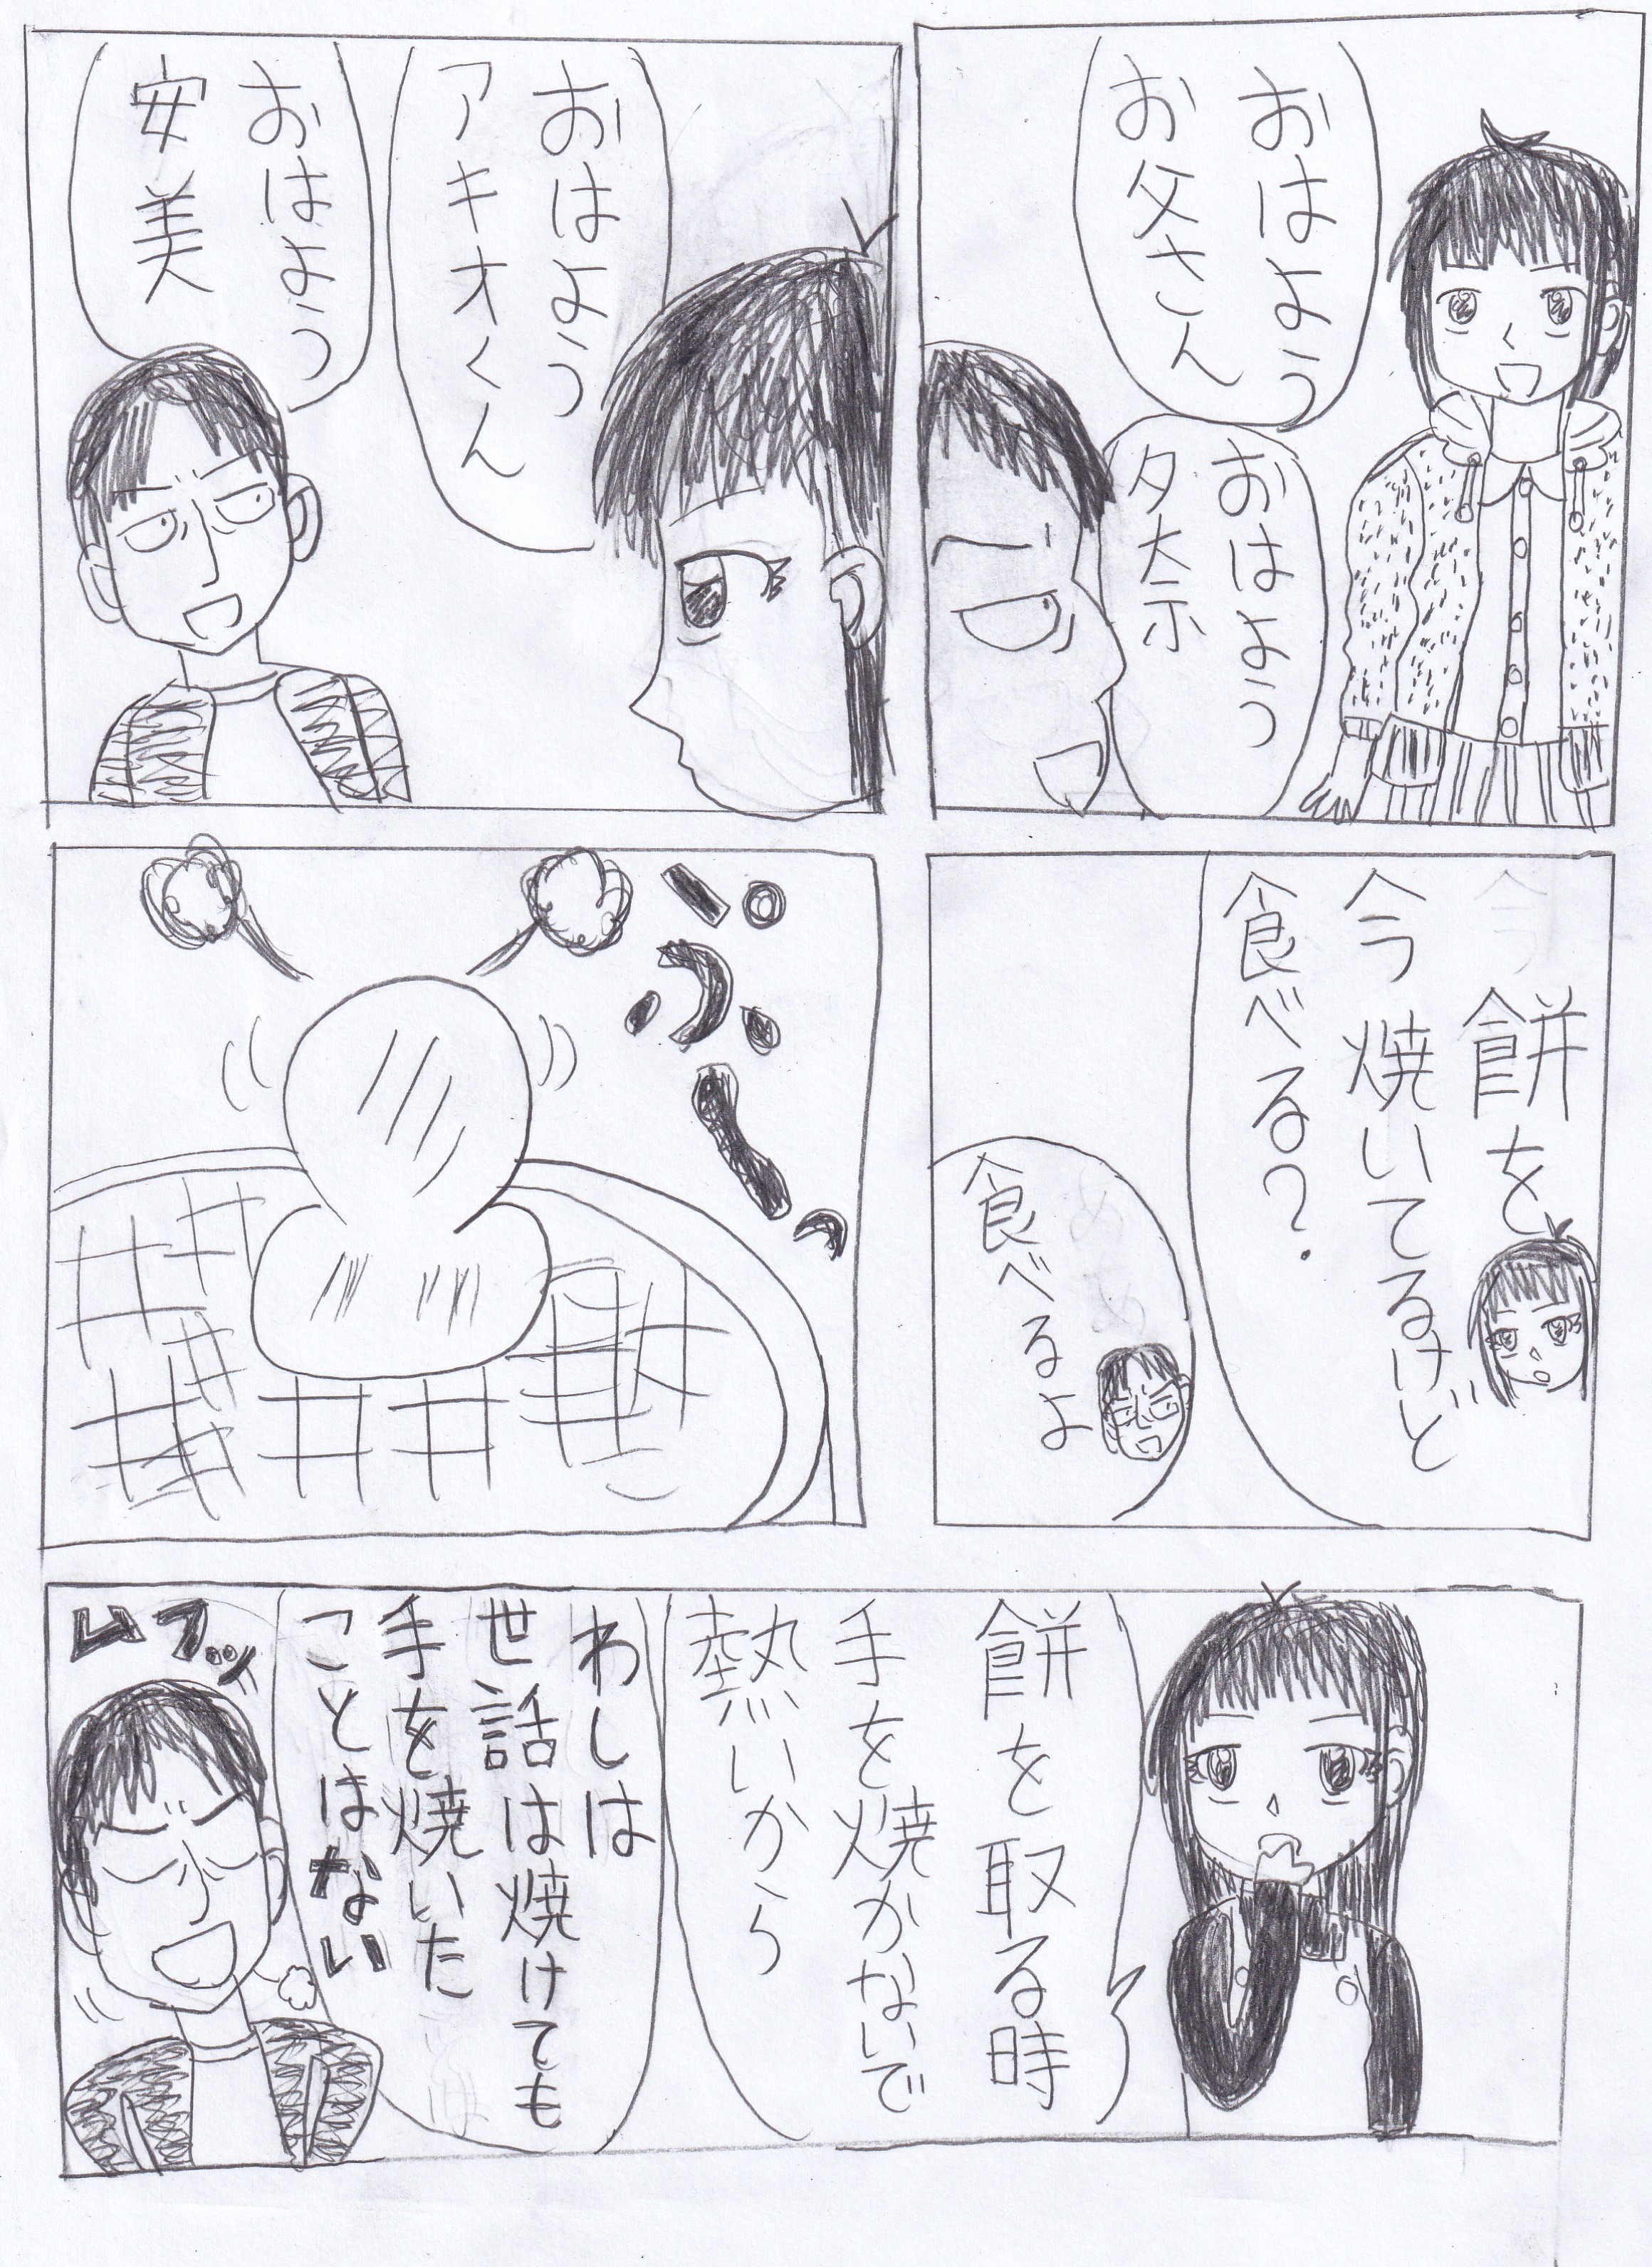 おはよう
お父さん
おはよう
夕奈
おはよう
アキオくん
おはよう
安美
餅を
今焼いてるけど
食べる?
食べるよ
ぷくー
餅を取る時
手を焼かないで
熱いから
わしは
世話は焼けても
手を焼いた
ことはない
ムフーッ